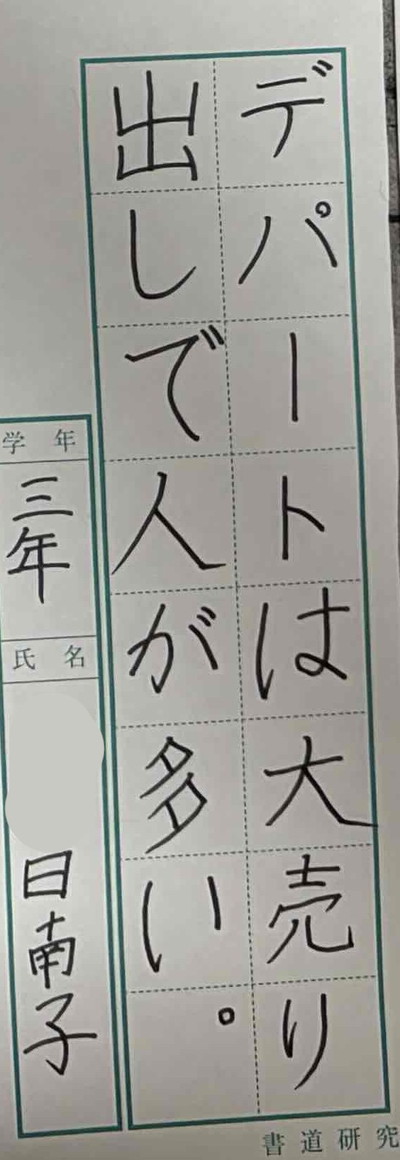 デパートは大売り
出しで人が多い。
学年
三年
氏名
日南子
書道研究